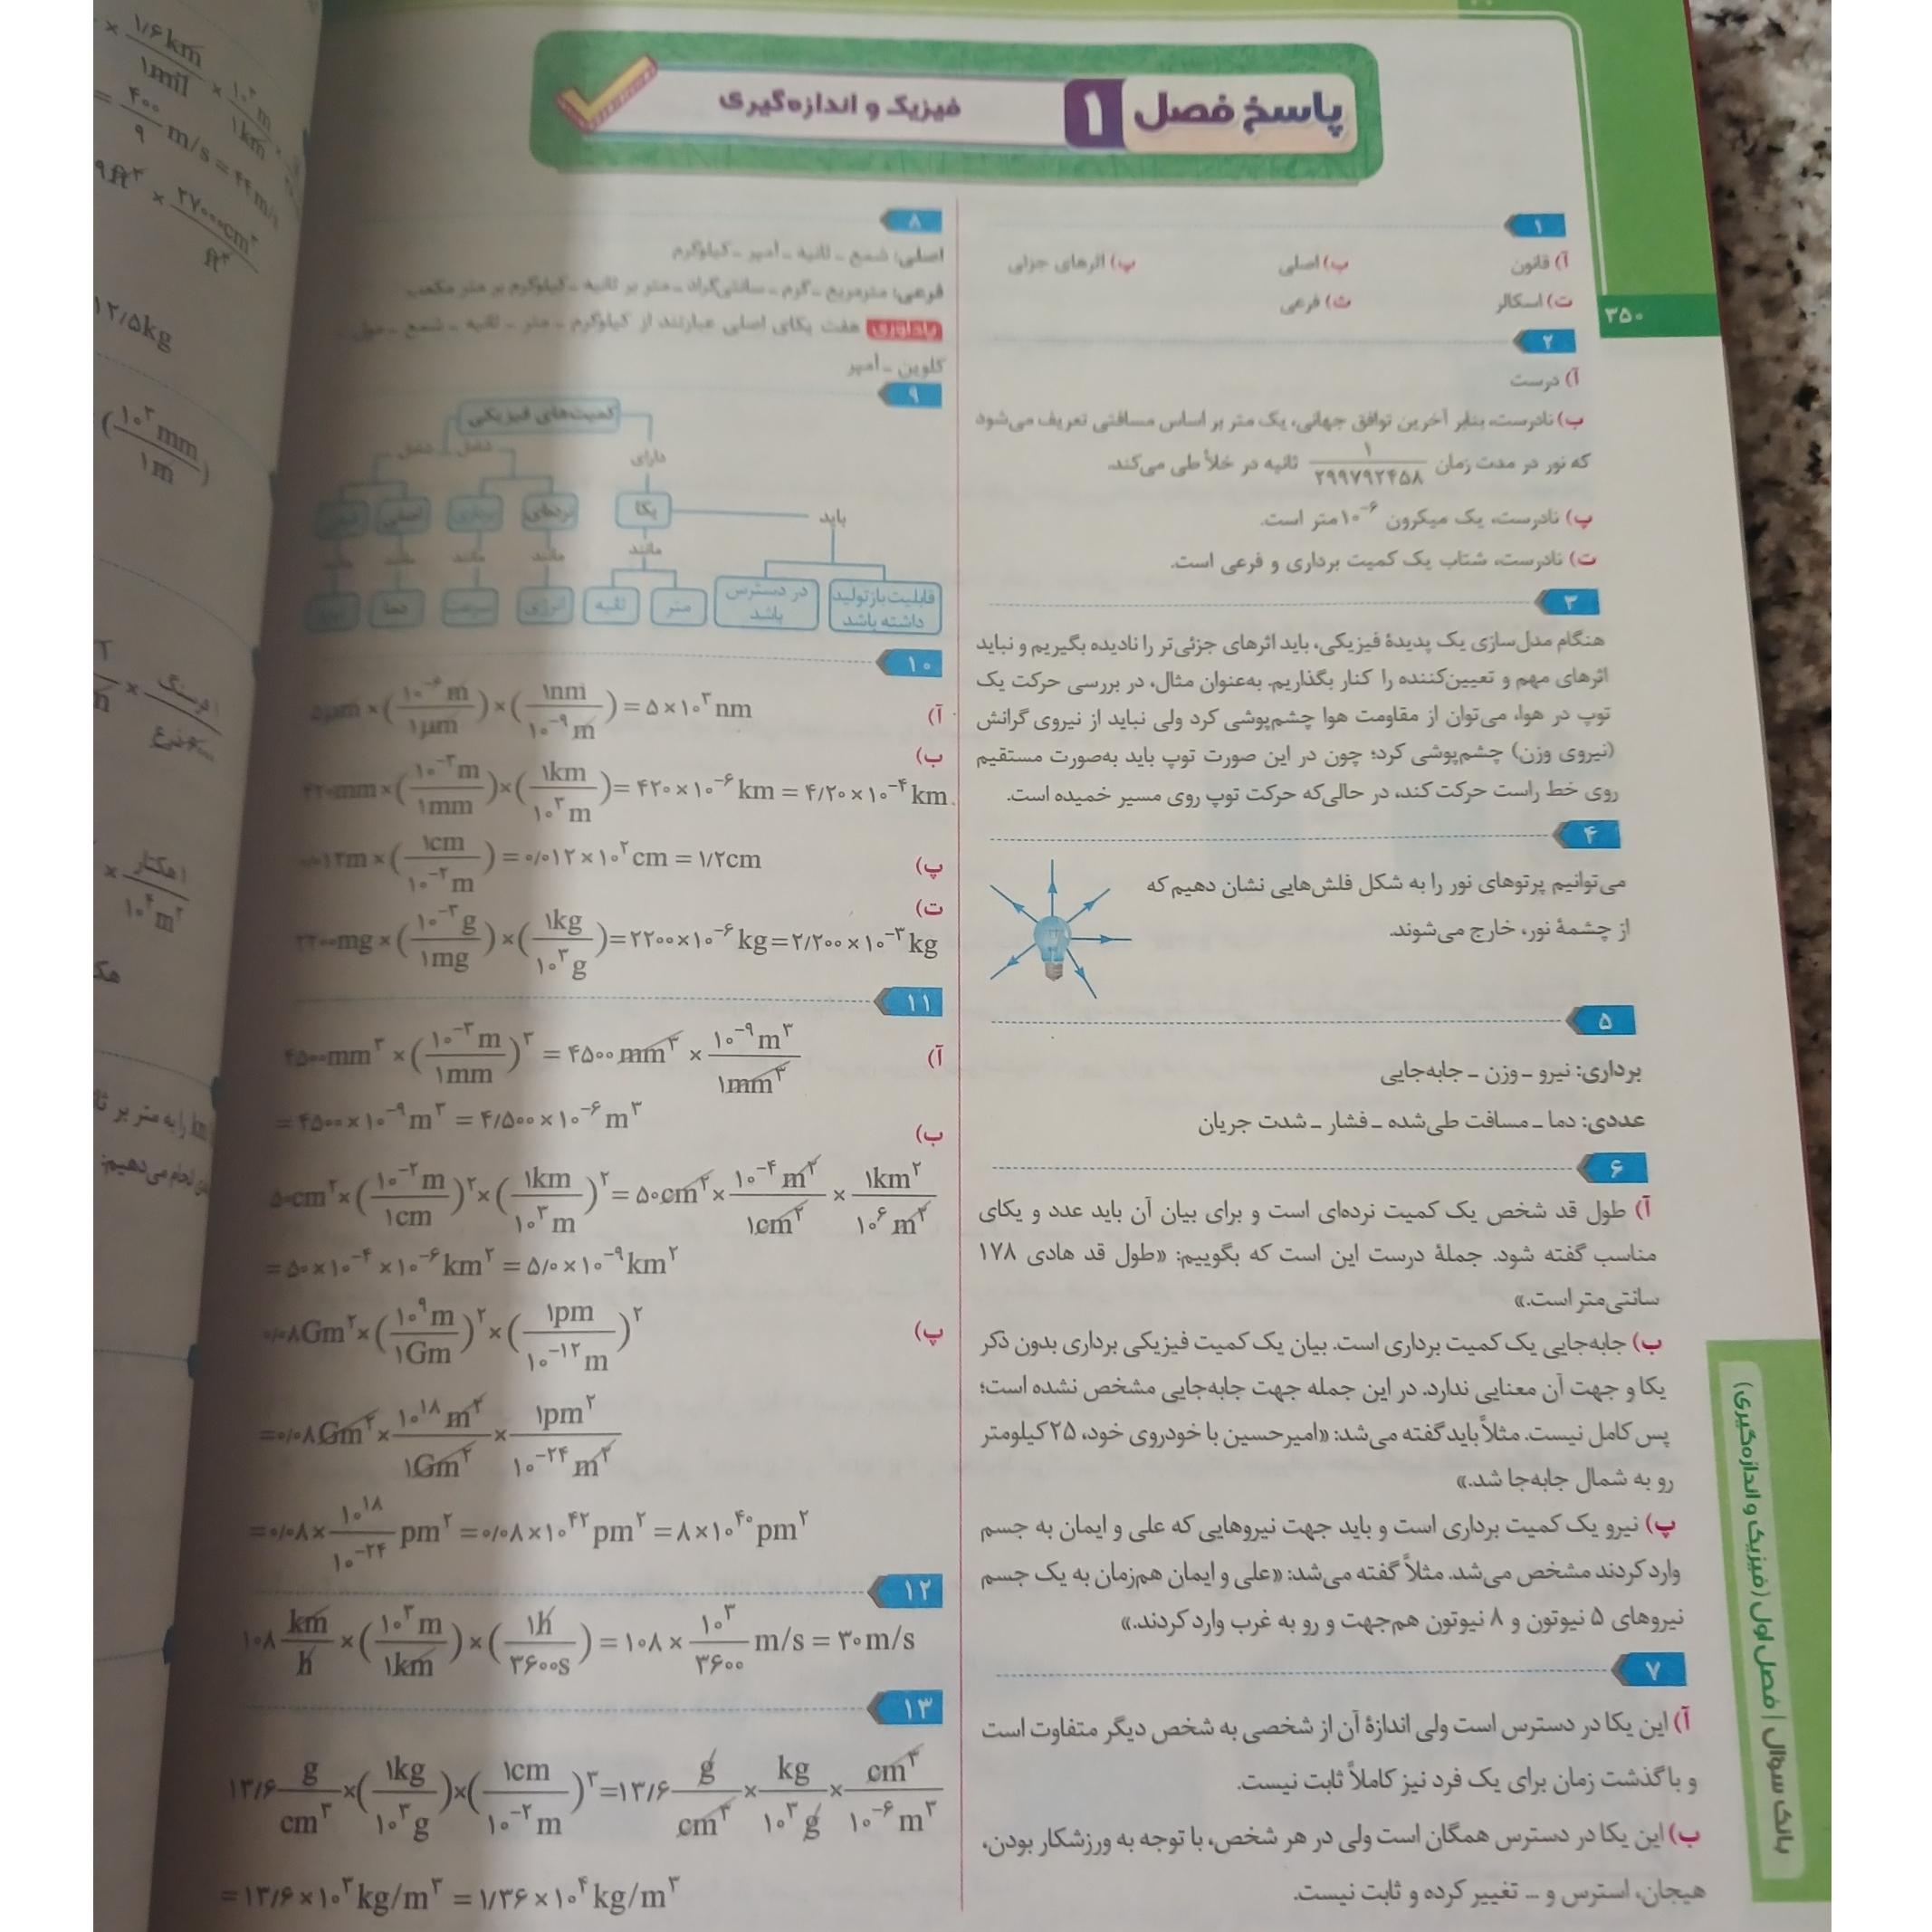 پاسخ فصل ۱
فیزیک و اندازه‌گیری
۳۵۰
۱
آ) قانون ب) اصلی پ) اثرهای جزئی
ت) اسکالر ث) فرعی
۲
آ) درست
ب) نادرست، بنابر آخرین توافق جهانی، یک متر بر اساس مسافتی تعریف می‌شود
که نور در مدت زمان ۱/۲۹۹۷۹۲۴۵۸ ثانیه در خلأ طی می‌کند.
پ) نادرست، یک میکرون ۱۰⁻⁶ متر است.
ت) نادرست، شتاب یک کمیت برداری و فرعی است.
۳
هنگام مدل‌سازی یک پدیدهٔ فیزیکی، باید اثرهای جزئی‌تر را نادیده بگیریم و نباید
اثرهای مهم و تعیین‌کننده را کنار بگذاریم. به‌عنوان مثال، در بررسی حرکت یک
توپ در هوا، می‌توان از مقاومت هوا چشم‌پوشی کرد ولی نباید از نیروی گرانش
(نیروی وزن) چشم‌پوشی کرد؛ چون در این صورت توپ باید به‌صورت مستقیم
روی خط راست حرکت کند، در حالی‌که حرکت توپ روی مسیر خمیده است.
۴
می‌توانیم پرتوهای نور را به شکل فلش‌هایی نشان دهیم که
از چشمهٔ نور، خارج می‌شوند.
۵
برداری: نیرو ـ وزن ـ جابه‌جایی
عددی: دما ـ مسافت طی‌شده ـ فشار ـ شدت جریان
۶
آ) طول قد شخص یک کمیت نرده‌ای است و برای بیان آن باید عدد و یکای
مناسب گفته شود. جملهٔ درست این است که بگوییم: «طول قد هادی ۱۷۸
سانتی‌متر است.»
ب) جابه‌جایی یک کمیت برداری است. بیان یک کمیت فیزیکی برداری بدون ذکر
یکا و جهت آن معنایی ندارد. در این جمله جهت جابه‌جایی مشخص نشده است؛
پس کامل نیست. مثلاً باید گفته می‌شد: «امیرحسین با خودروی خود، ۲۵ کیلومتر
رو به شمال جابه‌جا شد.»
پ) نیرو یک کمیت برداری است و باید جهت نیروهایی که علی و ایمان به جسم
وارد کردند مشخص می‌شد. مثلاً گفته می‌شد: «علی و ایمان هم‌زمان به یک جسم
نیروهای ۵ نیوتون و ۸ نیوتون هم‌جهت و رو به غرب وارد کردند.»
۷
آ) این یکا در دسترس است ولی اندازهٔ آن از شخصی به شخص دیگر متفاوت است
و با گذشت زمان برای یک فرد نیز کاملاً ثابت نیست.
ب) این یکا در دسترس همگان است ولی در هر شخص، با توجه به ورزشکار بودن،
هیجان، استرس و ... تغییر کرده و ثابت نیست.
۸
اصلی: شمع ـ ثانیه ـ آمپر ـ کیلوگرم
فرعی: مترمربع ـ گرم ـ سانتی‌گراد ـ متر بر ثانیه ـ کیلوگرم بر متر مکعب
یادآوری هفت یکای اصلی عبارتند از کیلوگرم ـ متر ـ ثانیه ـ شمع ـ مول ـ
کلوین ـ آمپر
۹
کمیت‌های فیزیکی
دارای شامل شامل
باید یکا نرده‌ای برداری اصلی فرعی
مانند مانند مانند مانند مانند
قابلیت بازتولید داشته باشد
در دسترس باشد
متر ثانیه انرژی سرعت دما
۱۰
آ) ۵μm × (۱۰⁻⁶ m / ۱μm) × (۱nm / ۱۰⁻⁹ m) = ۵ × ۱۰³ nm
ب)
۴۲۰mm × (۱۰⁻³ m / ۱mm) × (۱km / ۱۰³ m) = ۴۲۰ × ۱۰⁻⁶ km = ۴/۲۰ × ۱۰⁻⁴ km
پ) ۰/۰۱۲m × (۱cm / ۱۰⁻² m) = ۰/۰۱۲ × ۱۰² cm = ۱/۲cm
ت)
۲۲۰۰mg × (۱۰⁻³ g / ۱mg) × (۱kg / ۱۰³ g) = ۲۲۰۰ × ۱۰⁻⁶ kg = ۲/۲۰۰ × ۱۰⁻³ kg
۱۱
آ) ۴۵۰۰mm³ × (۱۰⁻³ m / ۱mm)³ = ۴۵۰۰ mm³ × ۱۰⁻⁹ m³ / ۱mm³
= ۴۵۰۰ × ۱۰⁻⁹ m³ = ۴/۵۰۰ × ۱۰⁻⁶ m³
ب)
۵۰cm² × (۱۰⁻² m / ۱cm)² × (۱km / ۱۰³ m)² = ۵۰cm² × ۱۰⁻⁴ m² / ۱cm² × ۱km² / ۱۰⁶ m²
= ۵۰ × ۱۰⁻⁴ × ۱۰⁻⁶ km² = ۵/۰ × ۱۰⁻⁹ km²
پ) ۰/۰۸Gm² × (۱۰⁹ m / ۱Gm)² × (۱pm / ۱۰⁻¹² m)²
= ۰/۰۸Gm² × ۱۰¹⁸ m² / ۱Gm² × ۱pm² / ۱۰⁻²⁴ m²
= ۰/۰۸ × ۱۰¹⁸ / ۱۰⁻²⁴ pm² = ۰/۰۸ × ۱۰⁴² pm² = ۸ × ۱۰⁴⁰ pm²
۱۲
۱۰۸ km/h × (۱۰³ m / ۱km) × (۱h / ۳۶۰۰s) = ۱۰۸ × ۱۰³ / ۳۶۰۰ m/s = ۳۰ m/s
۱۳
۱۳/۶ g/cm³ × (۱kg / ۱۰³ g) × (۱cm / ۱۰⁻² m)³ = ۱۳/۶ g/cm³ × kg / ۱۰³ g × cm³ / ۱۰⁻⁶ m³
= ۱۳/۶ × ۱۰³ kg/m³ = ۱/۳۶ × ۱۰⁴ kg/m³
بانک سوال | فصل اول (فیزیک و اندازه‌گیری)
× ۱/۶km / ۱mil × ۱۰³ m / ۱km
= ۴۰۰ / ۹ m/s = ۴۴ m/s
۹ft³ × ۲۷۰۰۰cm³ / ft³
۱۲/۵kg
(۱۰³ mm / ۱m)
۱ فرسنگ
ذرع
× ۱ هکتار / ۱۰⁴ m²
را به متر بر
انجام می‌دهیم: